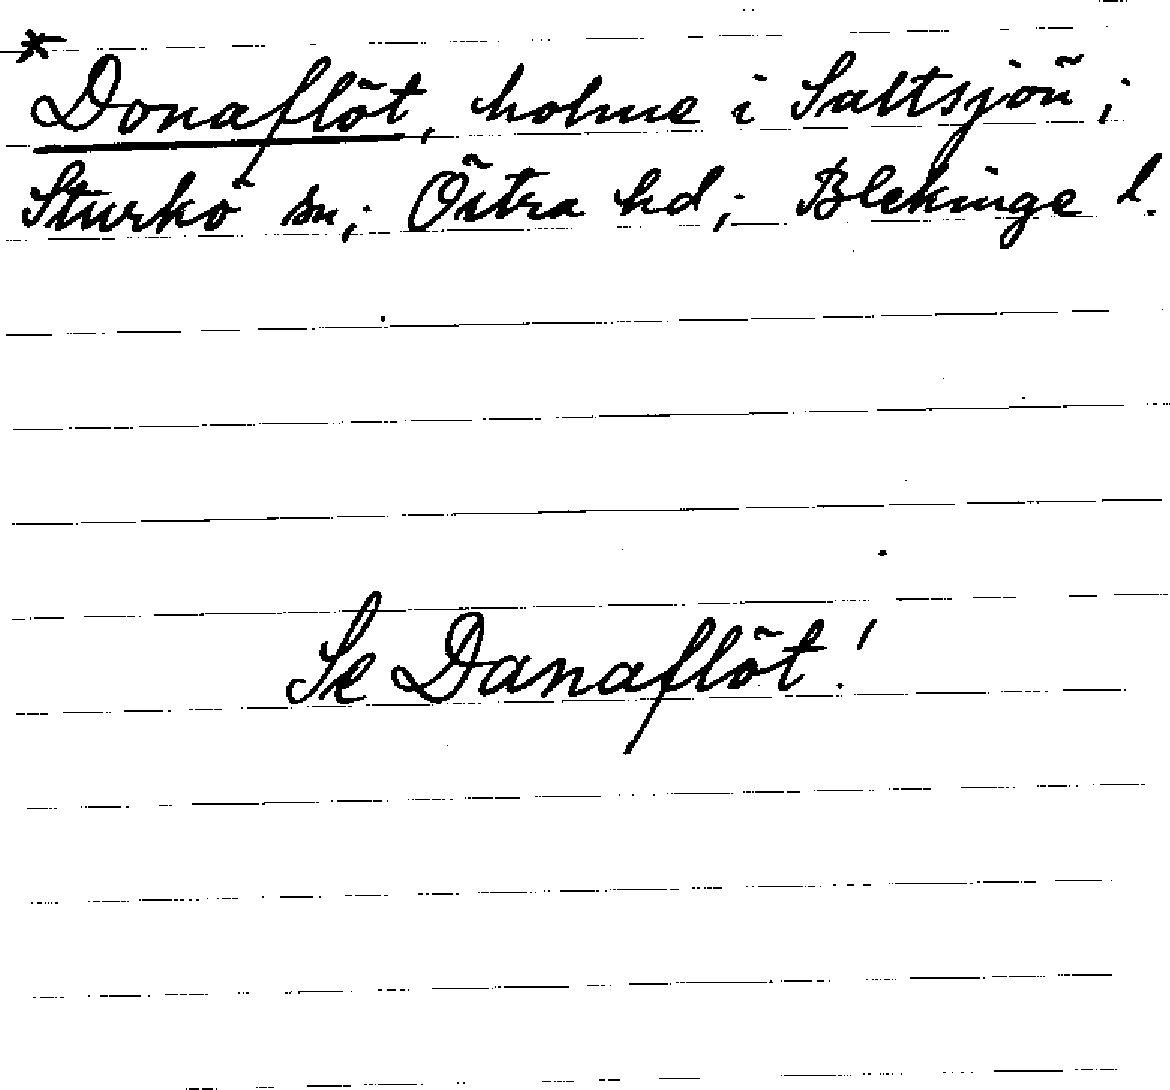 *
Donaflöt, holme i Saltsjön;
Sturkö sn; Östra hd; Blekinge l.
Se Danaflöt!